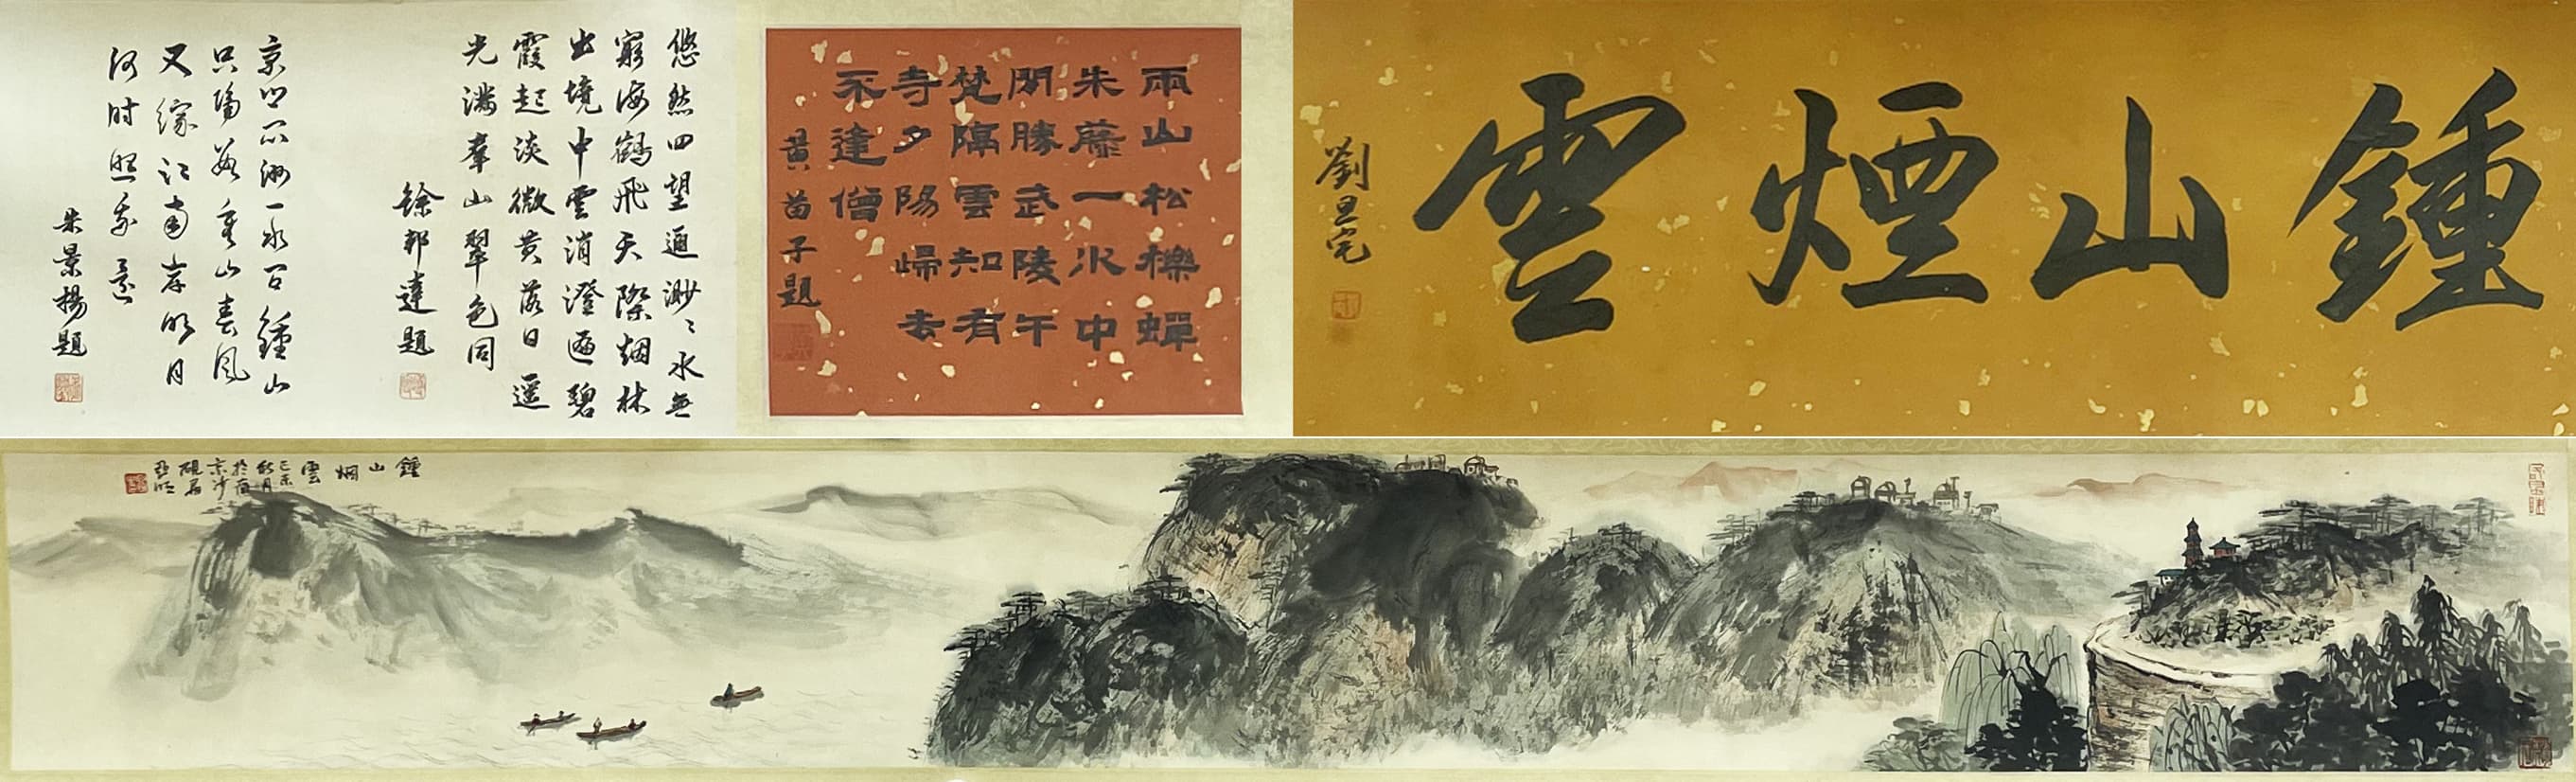 鍾山煙雲
劉旦宅
兩山松櫟蟬
朱藤一水中
開勝武陵午
梵隔雲知有
寺夕陽歸去
不逢僧
黄苗子題
悠然四望通渺々水無
窮海鶴飛天際烟林
出境中雲消澄遍碧
霞起淡微黄落日遥
光滿羣山翠色同
徐邦達題
京口瓜洲一水間鍾山
只隔數重山春風
又綠江南岸明月
何时照我還
朱景揚題
鍾山烟雲
己未
秋月
於南
京沙
硯居
亞明